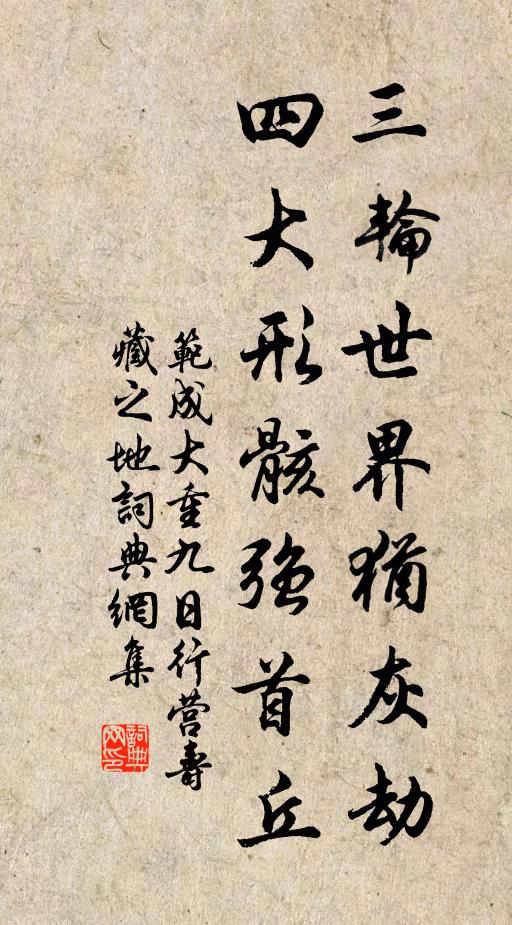 三輪世界猶灰劫
四大形骸強首丘
範成大重九日行营壽
藏之地詞典網集
詞典网印